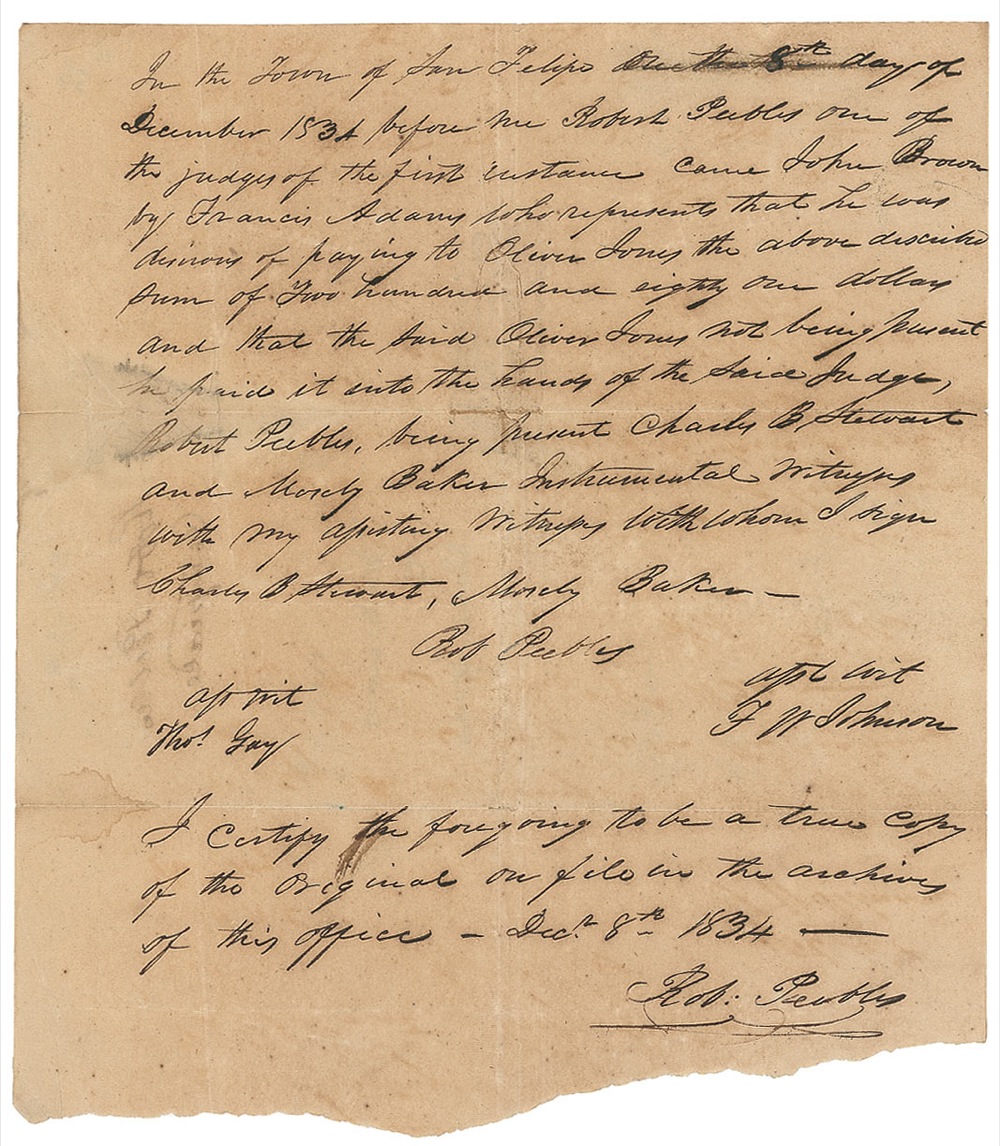 In the Town of San Felipe on the 8th day of
December 1834 before me Robert Peebles one of
the judges of the first instance came John Brown
by Francis Adams who represents that he was
desirous of paying to Oliver Jones the above described
sum of Two hundred and eighty one dollars
and that the said Oliver Jones not being present
he paid it into the hands of the said Judge,
Robert Peebles, being present Charles B Stewart
and Mosely Baker Instrumental Witnesses
with my assisting Witnesses with whom I sign
Charles B Stewart, Mosely Baker —
Rob Peebles
asst wit
F W Johnson
ass wit
Thos. Gay
I certify the foregoing to be a true copy
of the original on file in the archives
of this office – Decr. 8th 1834 —
Rob: Peebles